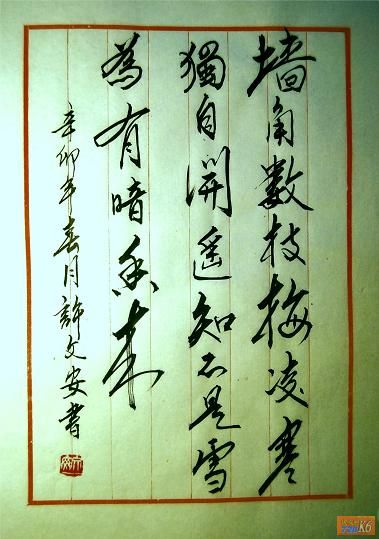 墙角数枝梅凌寒
獨自開遥知不是雪
為有暗香来
辛卯年春月許文安書
K6